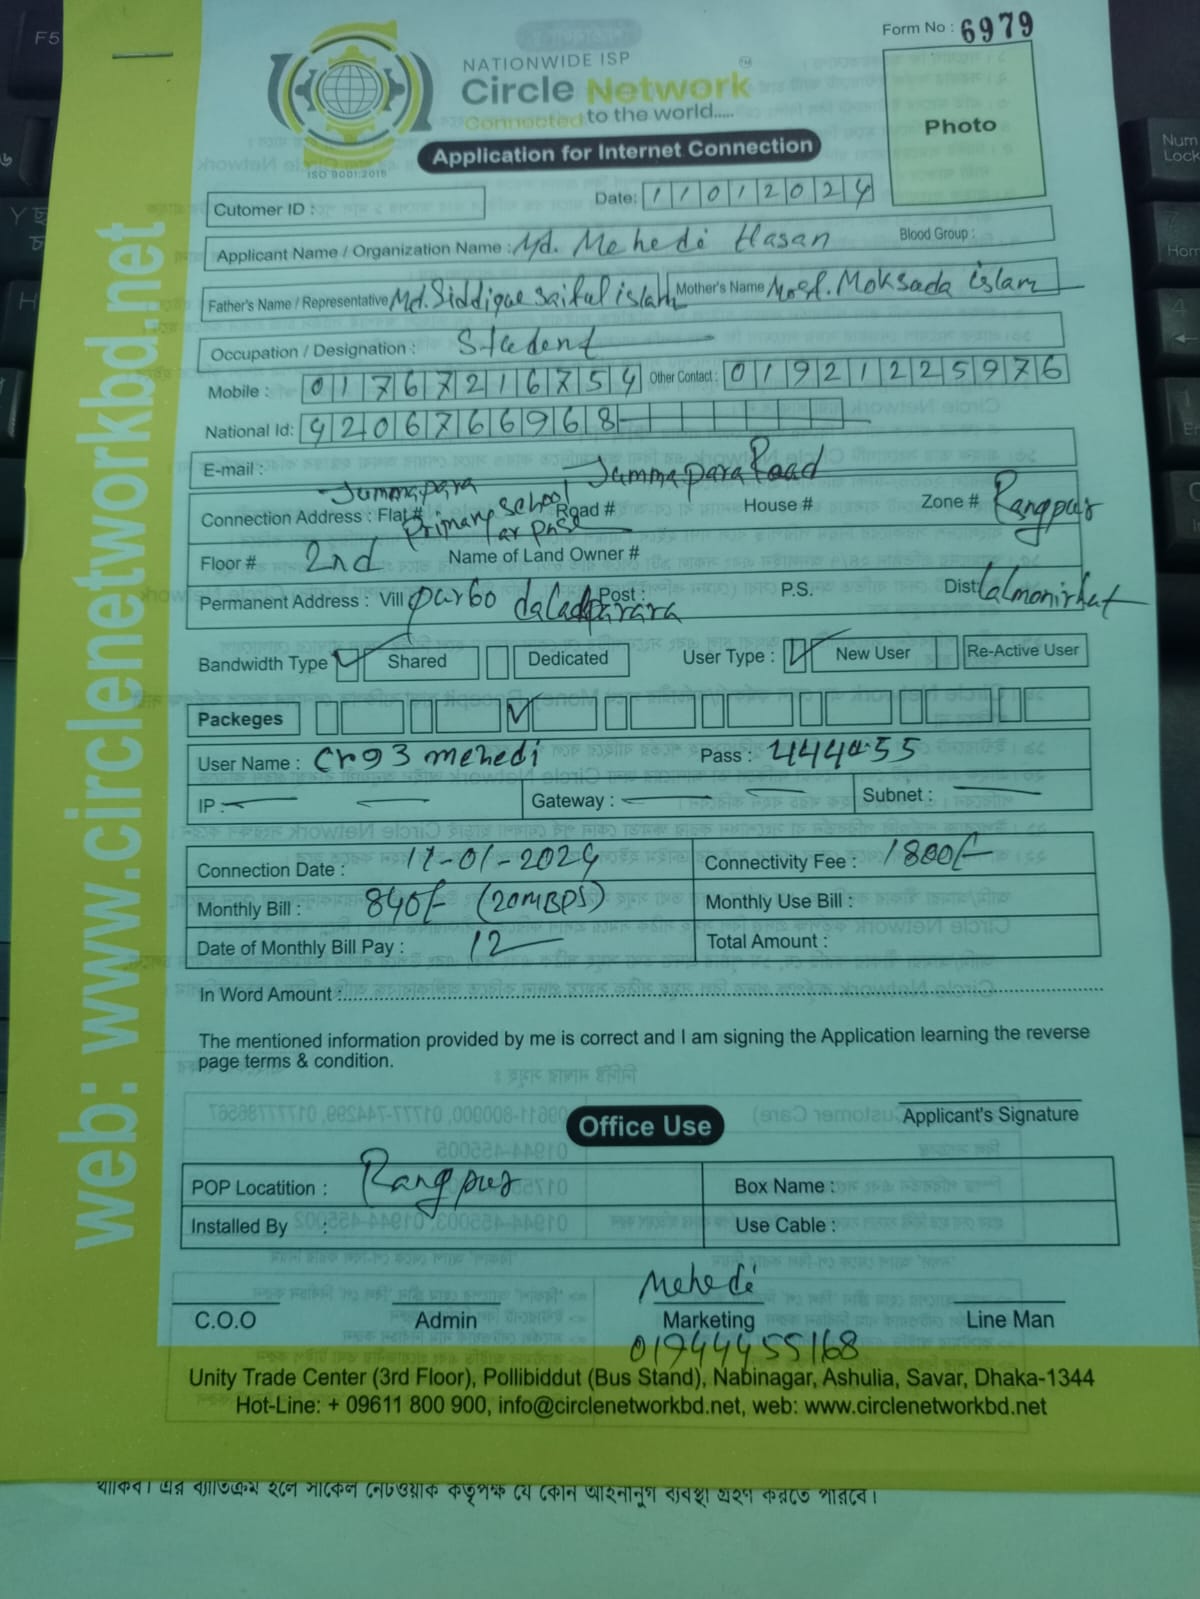 Form No : 6979
NATIONWIDE ISP
Circle Network
Connected to the world.....
ISO 9001:2015
Application for Internet Connection
Photo
Cutomer ID :
Date: 11012024
Applicant Name / Organization Name : Md. Mehedi Hasan Blood Group :
Father's Name / Representative Md. Siddique saiful islam Mother's Name Most. Moksada islam
Occupation / Designation : Student
Mobile : 01767216754 Other Contact : 01921225976
National Id: 4206766968
E-mail :
Jummapara Jummapara Road
Connection Address : Flat # Primary School Road # House # Zone # Rangpur
Floor # 2nd Name of Land Owner #
Permanent Address : Vill Post : P.S. Dist Lalmonirhat
Bandwidth Type Shared Dedicated User Type : New User Re-Active User
Packeges
User Name : cr93mehedi Pass : 444455
IP : Gateway : Subnet :
Connection Date : 11-01-2024 Connectivity Fee : 1800/-
Monthly Bill : 840/- (20MBPS) Monthly Use Bill :
Date of Monthly Bill Pay : 12 Total Amount :
In Word Amount :
The mentioned information provided by me is correct and I am signing the Application learning the reverse
page terms & condition.
Applicant's Signature
Office Use
POP Locatition : Rangpur Box Name :
Installed By : Use Cable :
Mehedi
C.O.O Admin Marketing Line Man
01944455168
Unity Trade Center (3rd Floor), Pollibiddut (Bus Stand), Nabinagar, Ashulia, Savar, Dhaka-1344
Hot-Line: + 09611 800 900, info@circlenetworkbd.net, web: www.circlenetworkbd.net
web: www.circlenetworkbd.net
থাকিব। এর ব্যাতিক্রম হলে সার্কেল নেটওয়ার্ক কতৃপক্ষ যে কোন আইনানুগ ব্যবস্থা গ্রহণ করতে পারবে।